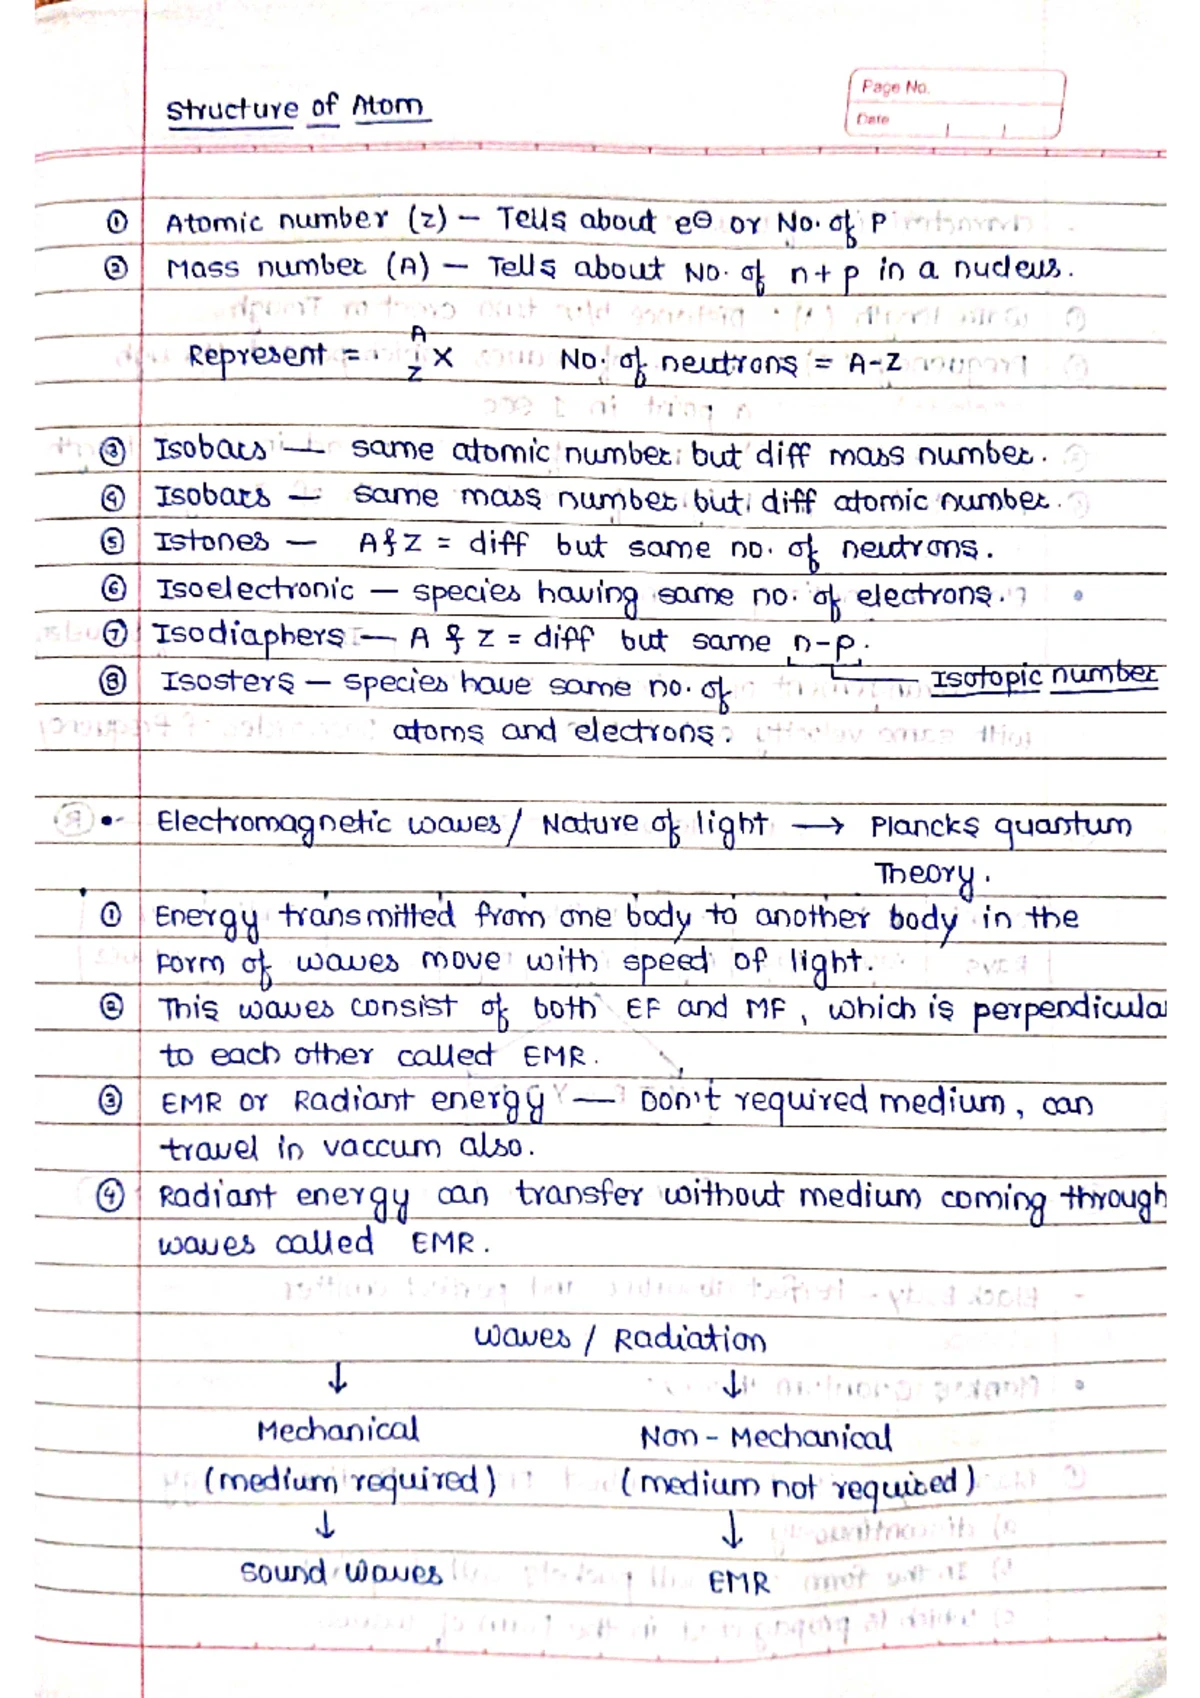 Structure of Atom
Page No.
Date
① Atomic number (z) — Tells about e⊖ or No. of P
② Mass number (A) — Tells about No. of n + p in a nucleus.
Represent = A
Z X No. of neutrons = A-Z
③ Isobars — same atomic number but diff mass number.
④ Isobars — same mass number but diff atomic number.
⑤ Istones — A & Z = diff but same no. of neutrons.
⑥ Isoelectronic — species having same no. of electrons.
⑦ Isodiaphers — A & Z = diff but same n-p.
Isotopic number
⑧ Isosters — species have same no. of
atoms and electrons.
• Electromagnetic waves / Nature of light → Plancks quantum
Theory.
① Energy transmitted from one body to another body in the
form of waves move with speed of light.
② This waves consist of both EF and MF, which is perpendicular
to each other called EMR.
③ EMR or Radiant energy — Don't required medium, can
travel in vaccum also.
④ Radiant energy can transfer without medium coming through
waves called EMR.
Waves / Radiation
↓ ↓
Mechanical Non - Mechanical
(medium required) (medium not required)
↓ ↓
Sound waves EMR